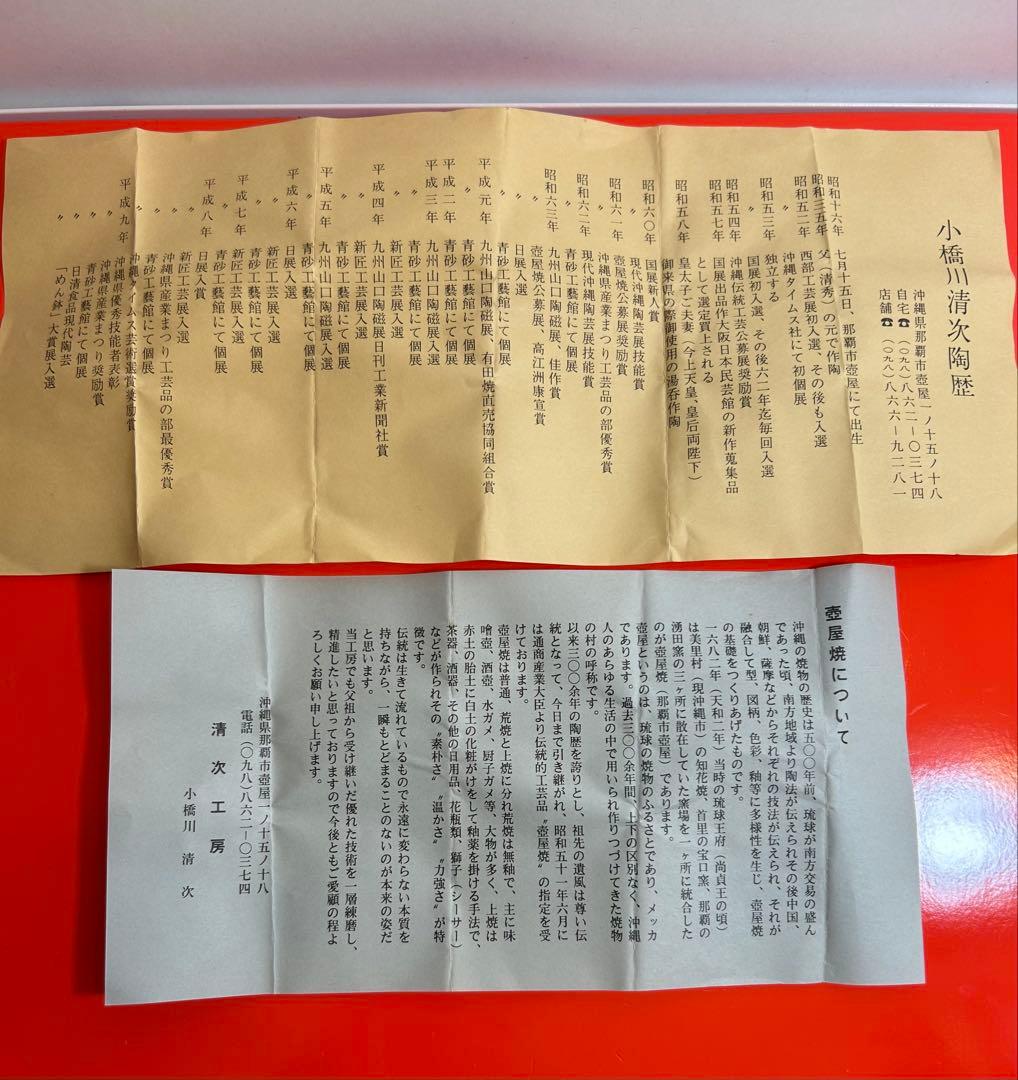 小橋川清次陶歴
沖縄県那覇市壺屋一ノ十五ノ十八
自宅☎(〇九八)八六二ー〇三七四
店舗☎(〇九八)八六六ー九二八一
昭和十六年 七月十五日、那覇市壺屋にて出生
昭和三五年 父(清秀)の元で作陶
昭和五二年 西部工芸展初入選、その後も入選
〃 沖縄タイムス社にて初個展
昭和五三年 独立する
〃 国展初入選、その後六二年迄毎回入選
昭和五四年 沖縄伝統工芸公募展奨励賞
昭和五七年 国展出品作大阪日本民芸館の新作蒐集品
として選定買上される
昭和五八年 皇太子ご夫妻(今上天皇、皇后両陛下)
御来県の際御使用の湯呑作陶
昭和六〇年 国展新人賞
〃 現代沖縄陶芸展技能賞
昭和六一年 壺屋焼公募展奨励賞
〃 沖縄県産業まつり工芸品の部優秀賞
昭和六二年 現代沖縄陶芸展技能賞
〃 九州山口陶磁展、佳作賞
昭和六三年 壺屋焼公募展、高江洲康宣賞
〃 日展入選
〃 青砂工藝館にて個展
平成元年 九州山口陶磁展、有田焼直売協同組合賞
〃 青砂工藝館にて個展
平成二年 青砂工藝館にて個展
平成三年 九州山口陶磁展入選
〃 青砂工藝館にて個展
〃 新匠工芸展入選
平成四年 九州山口陶磁展日刊工業新聞社賞
〃 新匠工芸展入選
〃 青砂工藝館にて個展
平成五年 九州山口陶磁展入選
〃 青砂工藝館にて個展
平成六年 日展入選
〃 新匠工芸展入選
〃 青砂工藝館にて個展
平成七年 新匠工芸展入選
〃 青砂工藝館にて個展
平成八年 日展入賞
〃 新匠工芸展入選
〃 沖縄県産業まつり工芸品の部最優秀賞
〃 青砂工藝館にて個展
〃 沖縄タイムス芸術選賞奨励賞
平成九年 沖縄県優秀技能者表彰
〃 沖縄県産業まつり奨励賞
〃 青砂工藝館にて個展
〃 日清食品現代陶芸
〃 「めん鉢」大賞展入選
壺屋焼について
沖縄の焼物の歴史は五〇〇年前、琉球が南方交易の盛ん
であった頃、南方地域より陶法が伝えられその後中国、
朝鮮、薩摩などからそれぞれの技法が伝えられ、それが
融合して型、図柄、色彩、釉等に多様性を生じ、壺屋焼
の基礎をつくりあげたものです。
一六八二年(天和二年)当時の琉球王府(尚貞王の頃)
は美里村(現沖縄市)の知花焼、首里の宝口窯、那覇の
湧田窯の三ヶ所に散在していた窯場を一ヶ所に統合した
のが壺屋焼(那覇市壺屋)であります。
壺屋というのは、琉球の焼物のふるさとであり、メッカ
であります。過去三〇〇余年間、上下の区別なく、沖縄
人のあらゆる生活の中で用いられ作りつづけてきた焼物
の村の呼称です。
以来三〇〇余年の陶歴を誇りとし、祖先の遺風は尊い伝
統となって、今日まで引き継がれ、昭和五十一年六月に
は通商産業大臣より伝統的工芸品〝壺屋焼〟の指定を受
けております。
壺屋焼は普通、荒焼と上焼に分れ荒焼は無釉で、主に味
噌壺、酒壺、水ガメ、厨子ガメ等、大物が多く、上焼は
赤土の胎土に白土の化粧がけをして釉薬を掛ける手法で、
茶器、酒器、その他の日用品、花瓶類、獅子(シーサー)
などが作られその〝素朴さ〟〝温かさ〟〝力強さ〟が特
徴です。
伝統は生きて流れているもので永遠に変わらない本質を
持ちながら、一瞬もとどまることのないのが本来の姿だ
と思います。
当工房でも父祖から受け継いだ優れた技術を一層練磨し、
精進したいと思っておりますので今後ともご愛顧の程よ
ろしくお願い申し上げます。
沖縄県那覇市壺屋一ノ十五ノ十八
電話(〇九八)八六二ー〇三七四
清次工房
小橋川 清次